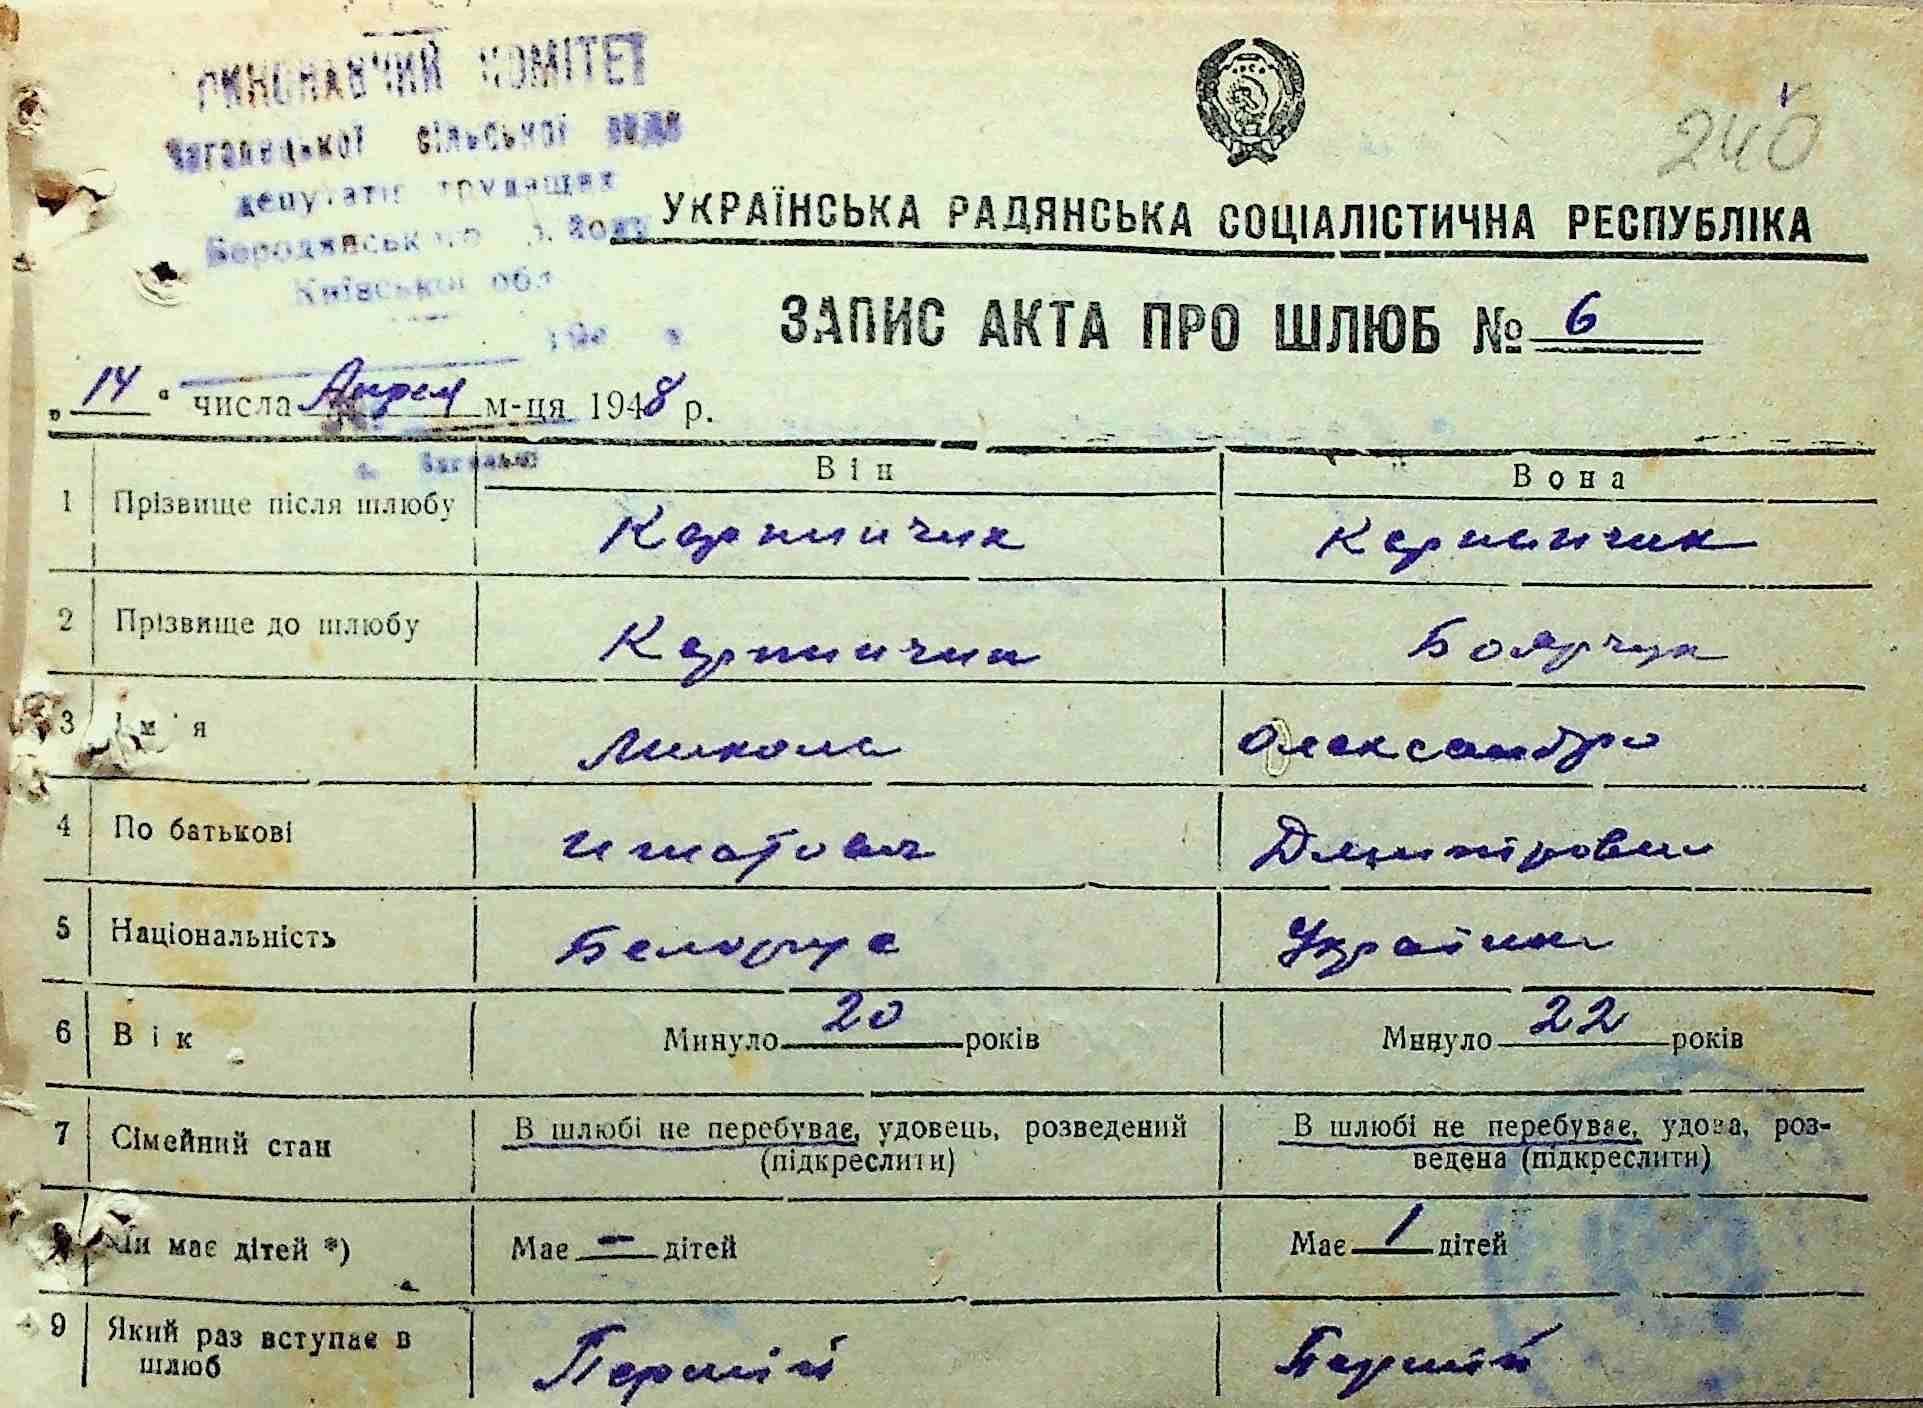 ВИКОНАВЧИЙ КОМІТЕТ
сільської ради
депутатів трудящих
Бородянського району
Київської обл.
240
УКРАЇНСЬКА РАДЯНСЬКА СОЦІАЛІСТИЧНА РЕСПУБЛІКА
ЗАПИС АКТА ПРО ШЛЮБ № 6
„14“ числа Апреля м-ця 1948 р.
Він Вона
1 Прізвище після шлюбу Карпинчик Карпинчик
2 Прізвище до шлюбу Карпинчик Боярчук
3 Ім'я Микола Олександра
4 По батькові Игнатович Дмитровна
5 Національність Белорус Українка
6 Вік Минуло 20 років Минуло 22 років
7 Сімейний стан В шлюбі не перебуває, удовець, розведений В шлюбі не перебуває, удова, роз-
(підкреслити) ведена (підкреслити)
8 Чи має дітей *) Має — дітей Має 1 дітей
9 Який раз вступає в Перший Перший
шлюб